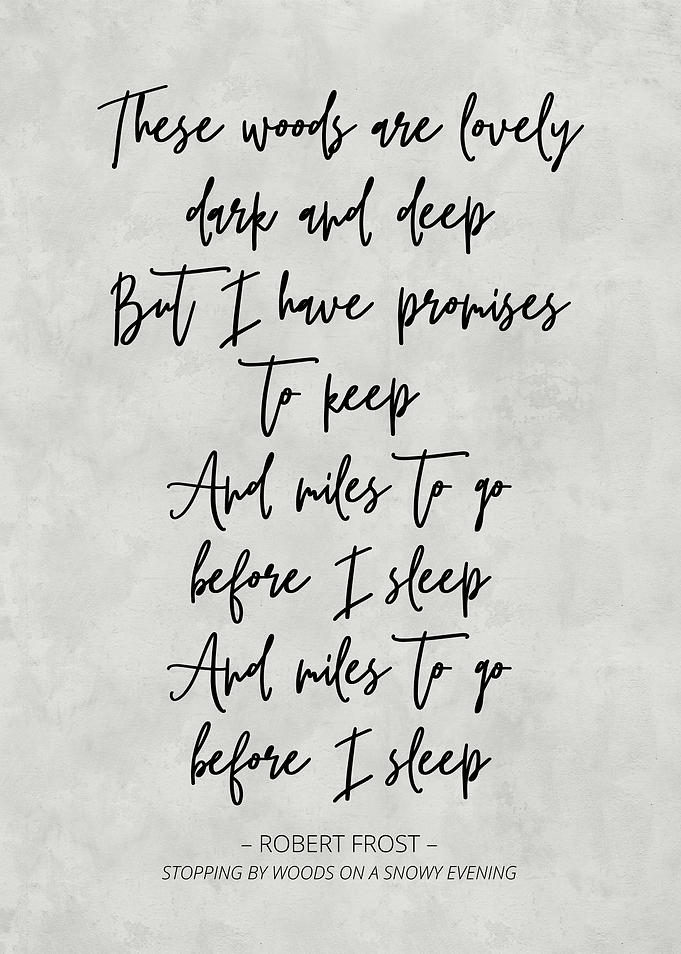 These woods are lovely
dark and deep
But I have promises
To keep
And miles To go
before I sleep
And miles To go
before I sleep
– ROBERT FROST –
STOPPING BY WOODS ON A SNOWY EVENING